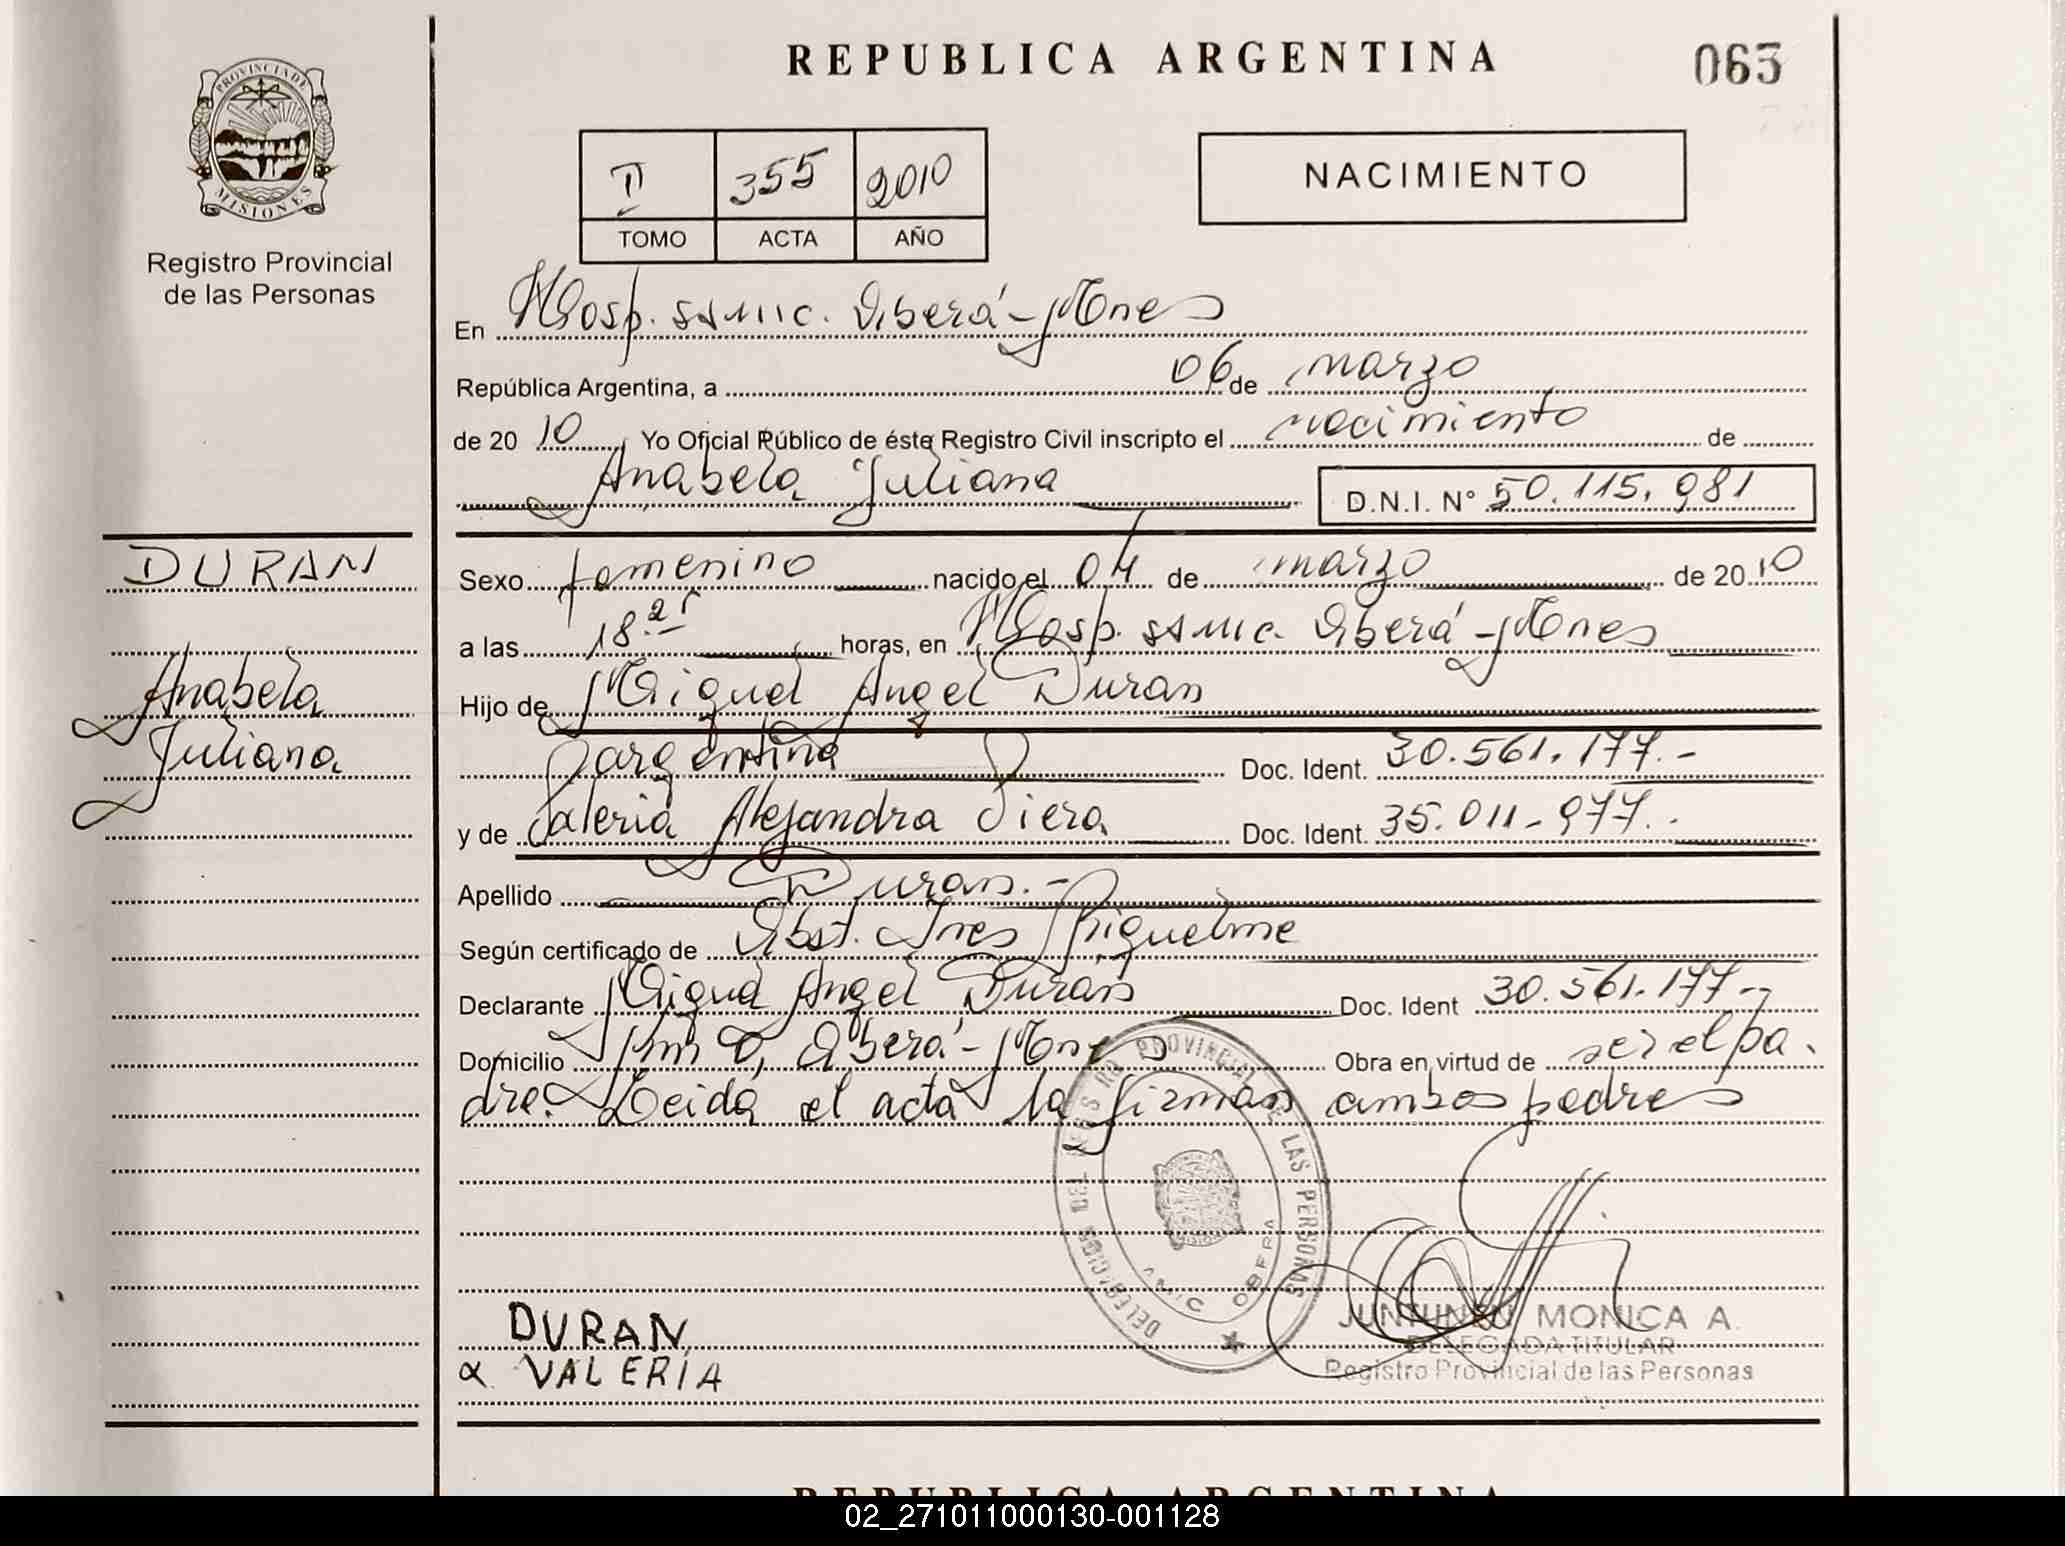 REPUBLICA ARGENTINA
063
PROVINCIA DE
MISIONES
Registro Provincial
de las Personas
II 355 2010
TOMO ACTA AÑO
NACIMIENTO
En Hosp. ssmic. Oberá - Mnes
República Argentina, a 06 de marzo
de 2010 Yo Oficial Público de éste Registro Civil inscripto el nacimiento de
Anabela Juliana D.N.I. N° 50.115.981
DURAN
Anabela
Juliana
Sexo femenino nacido el 04 de marzo de 2010
a las 18.21 horas, en Hosp. ssmic. Oberá - Mnes
Hijo de Miguel Angel Duran
argentina Doc. Ident. 30.561.177.-
y de Valeria Alejandra Viera Doc. Ident. 35.011.977.-
Apellido Duran.-
Según certificado de Obst. Ines Riquelme
Declarante Miguel Angel Duran Doc. Ident 30.561.177.-
Domicilio Oberá - Mnes Obra en virtud de ser el pa.
dre. Leida el acta la firman ambos padres
DELEGACION DEL REGISTRO PROVINCIAL DE LAS PERSONAS
OBERA
DURAN
VALERIA
JUNTUNEN MONICA A.
DELEGADA TITULAR
Registro Provincial de las Personas
REPUBLICA ARGENTINA
02_271011000130-001128